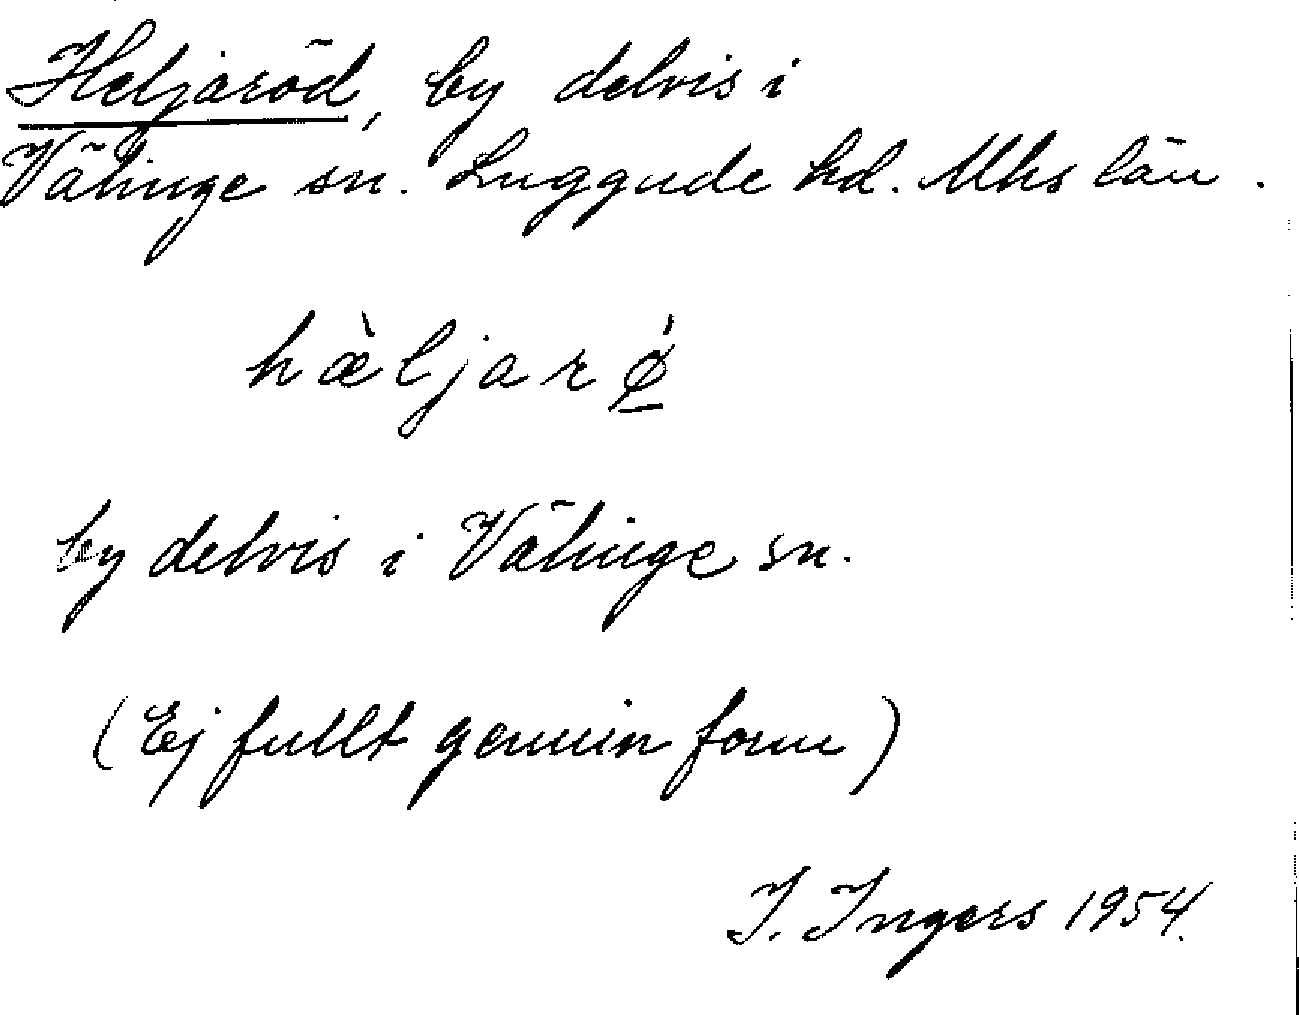 Heljaröd, by delvis i
Välinge sn. Luggude hd. Mhs län.
hæ̀ljarǿ̲
by delvis i Välinge sn.
(Ej fullt genuin form)
I. Ingers 1954.